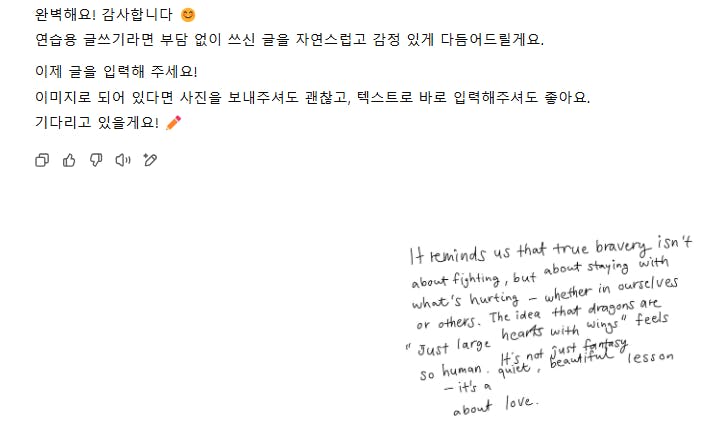 완벽해요! 감사합니다 😊
연습용 글쓰기라면 부담 없이 쓰신 글을 자연스럽고 감정 있게 다듬어드릴게요.
이제 글을 입력해 주세요!
이미지로 되어 있다면 사진을 보내주셔도 괜찮고, 텍스트로 바로 입력해주셔도 좋아요.
기다리고 있을게요! ✏️
It reminds us that true bravery isn't
about fighting, but about staying with
what's hurting – whether in ourselves
or others. The idea that dragons are
"Just large hearts with wings" feels
so human. It's not just fantasy
– it's a quiet, beautiful lesson
about love.